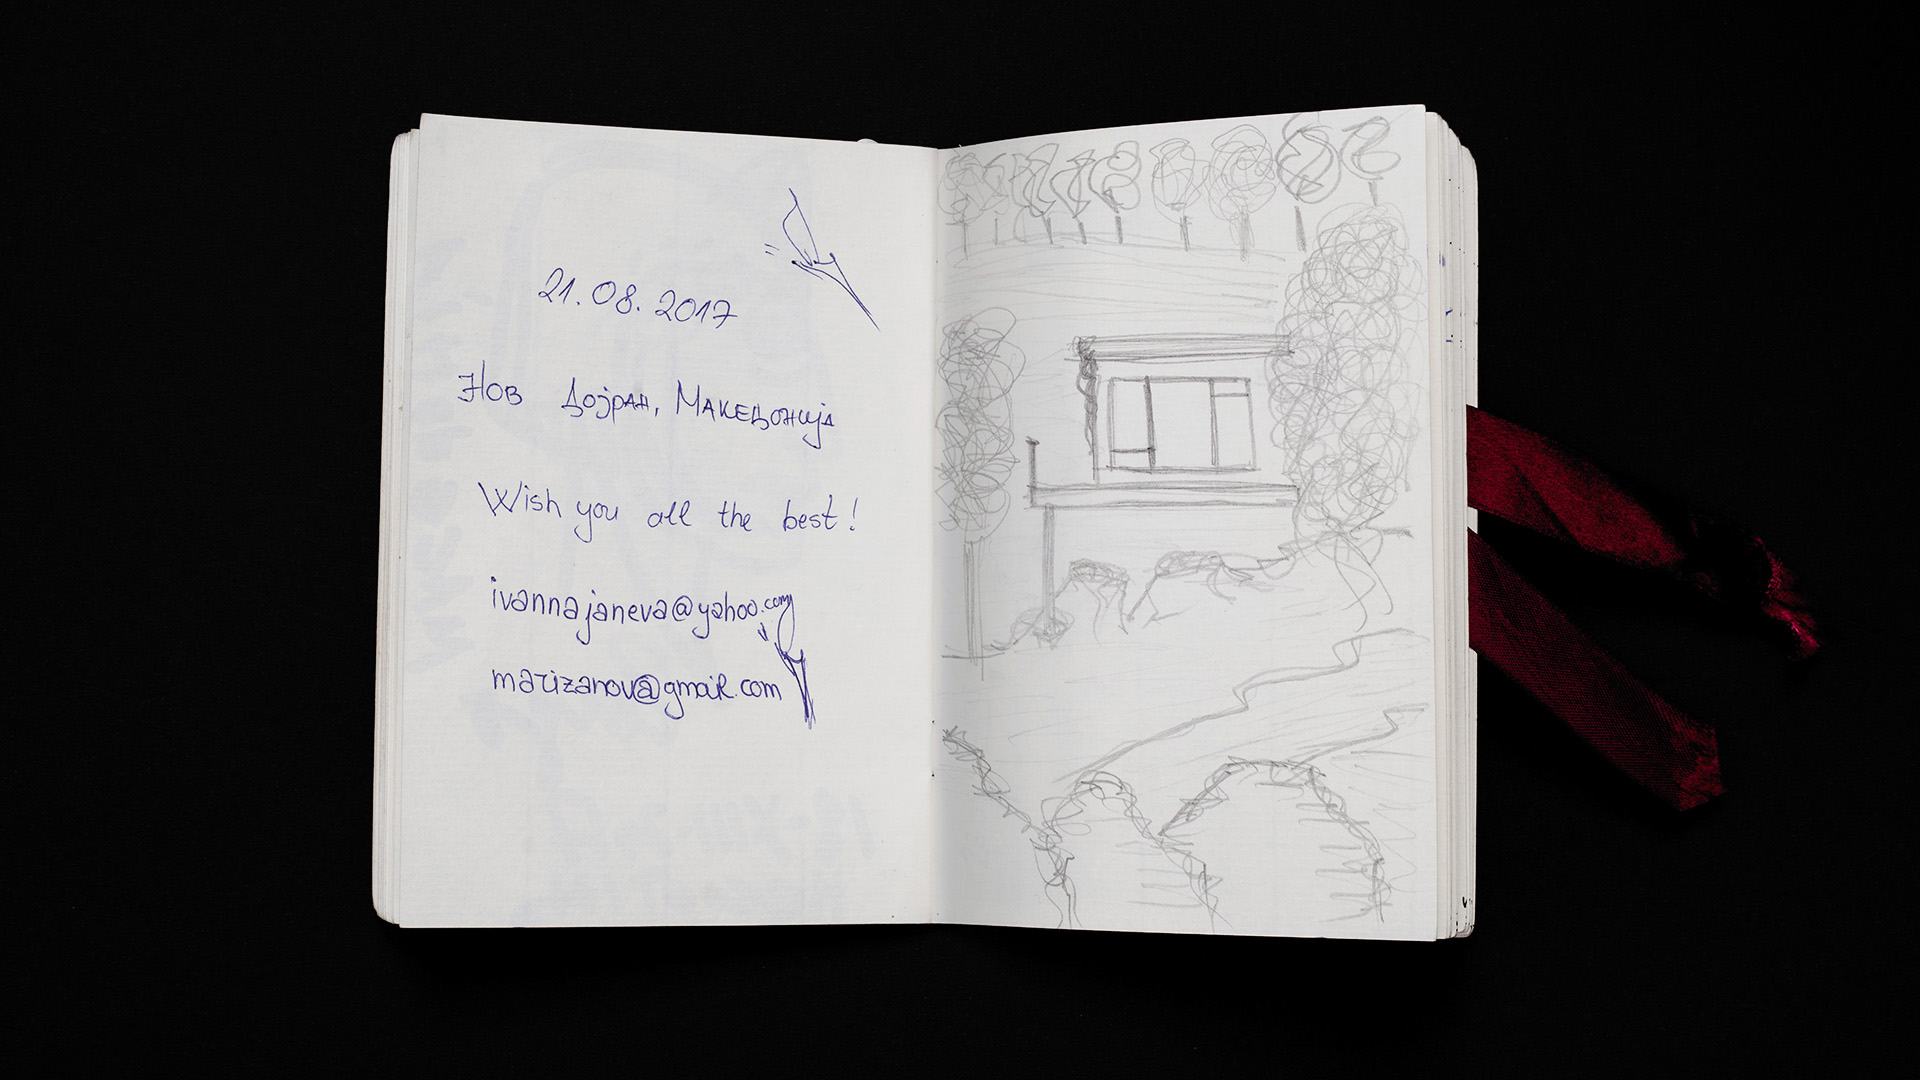 21.08.2017
Нов Дојран, Македонија
Wish you all the best!
ivannajaneva@yahoo.com
marizanov@gmail.com